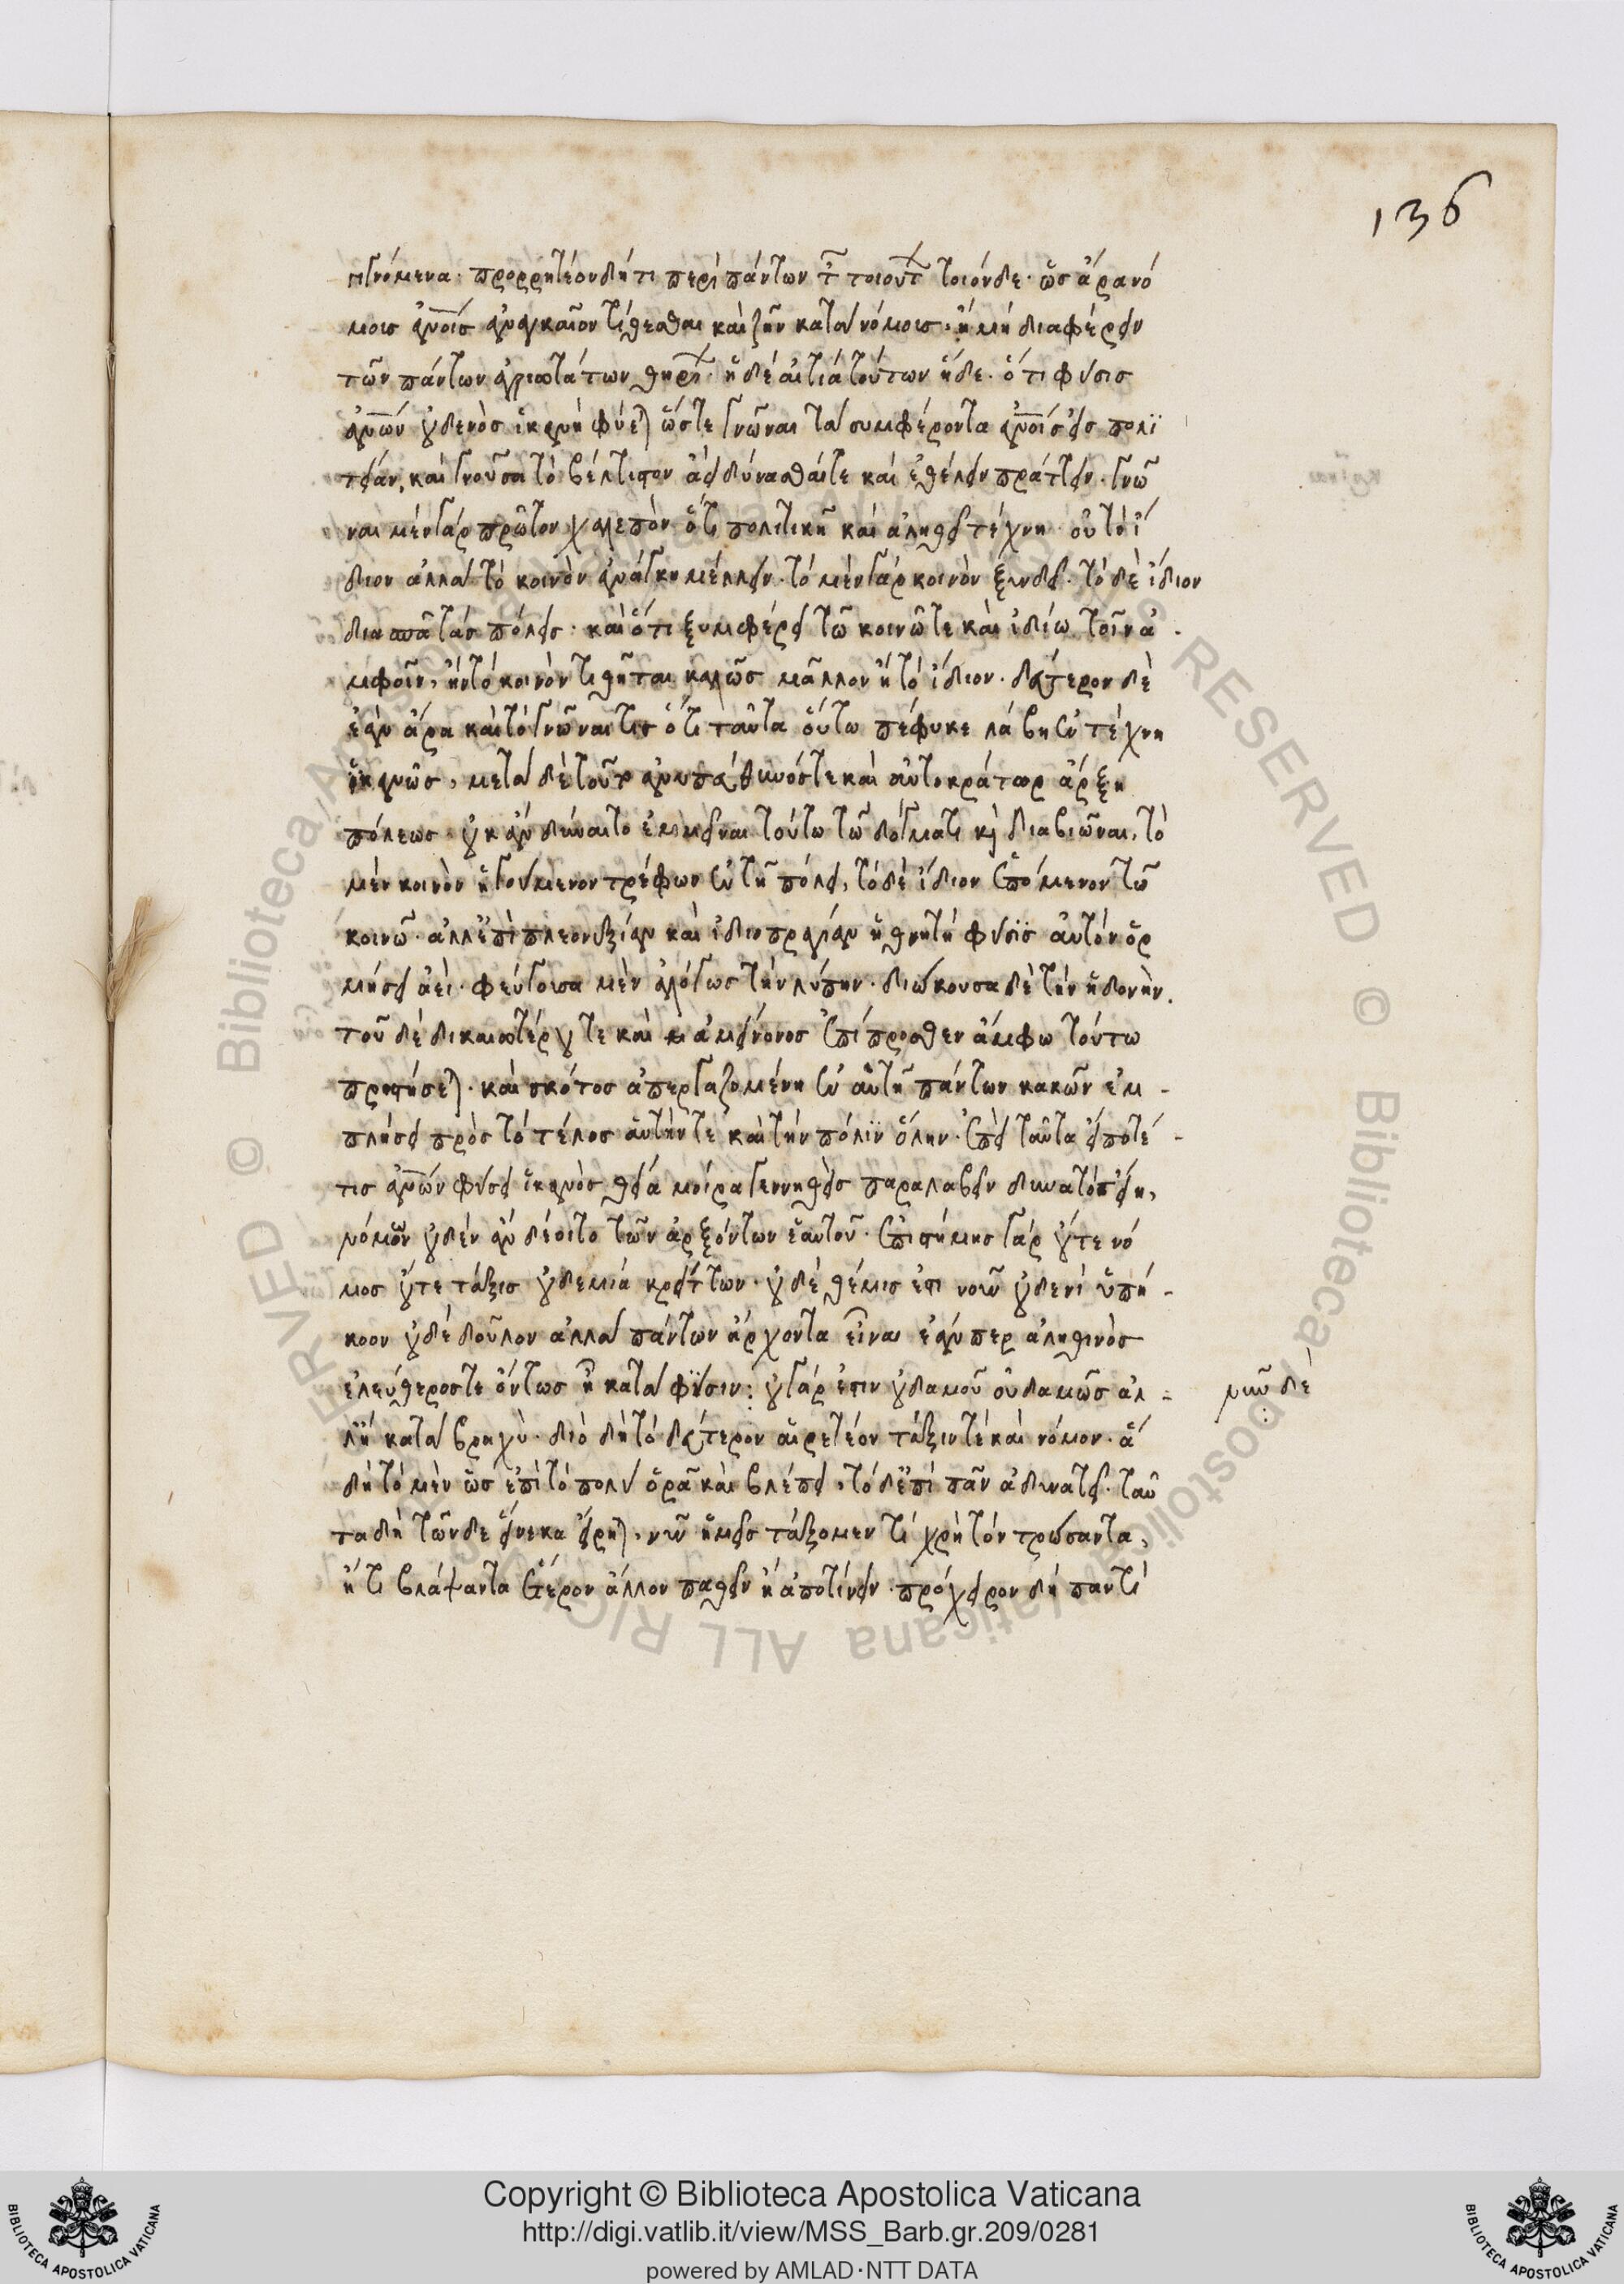 136
γιγνόμενα· προρρητέον δή τι περὶ πάντων τῶν τοιούτων τοιόνδε· ὡς ἄρα νό
μοις ἀνοις ἀναγκαῖον τίθεσθαι καὶ ζῆν κατὰ νόμοις· ἢ μὴ διαφέρειν
τῶν πάντων ἀγριωτάτων θηρίων· ἡ δὲ αἰτία τούτων ἥδε· ὅτι φύσις
ἀνων οὐδενὸς ἱκανὴ φύεται ὥστε γνῶναι τὰ συμφέροντα ἀνοις εἰς πολι
τείαν, καὶ γνοῦσα τὸ βέλτιστον ἀεὶ δύνασθαί τε καὶ ἐθέλειν πράττειν. γνῶ
ναι μὲν γὰρ πρῶτον χαλεπὸν ὅτι πολιτικῇ καὶ ἀληθεῖ τέχνῃ οὐ τὸ ἴ
διον ἀλλὰ τὸ κοινὸν ἀνάγκη μέλλειν. τὸ μὲν γὰρ κοινὸν ξυνδεῖ. τὸ δὲ ἴδιον
διασπᾶ τὰς πόλεις· καὶ ὅτι ξυμφέρει τῷ κοινῷ τε καὶ ἰδίῳ τοῖν ἀ-
μφοῖν, ἢν τὸ κοινὸν τιθῆται καλῶς μᾶλλον ἢ τὸ ἴδιον. δεύτερον δὲ
ἐὰν ἄρα καὶ τὸ γνῶναί τις ὅτι ταῦτα οὕτω πέφυκε λάβῃ ἐν τέχνῃ
ἱκανῶς, μετὰ δὲ τοῦτο ἀνυπεύθυνός τε καὶ αὐτοκράτωρ ἄρξῃ
πόλεως οὐκ ἂν δύναιτο ἐμμεῖναι τούτῳ τῷ δόγματι καὶ διαβιῶναι, τὸ
μὲν κοινὸν ἡγούμενον τρέφων ἐν τῇ πόλει, τὸ δὲ ἴδιον ἑπόμενον τῷ
κοινῷ· ἀλλ' ἐπὶ πλεονεξίαν καὶ ἰδιοπραγίαν ἡ θνητὴ φύσις αὐτὸν ὁρ
μήσει ἀεί· φεύγουσα μὲν ἀλόγως τὴν λύπην· διώκουσα δὲ τὴν ἡδονήν.
τοῦ δὲ δικαιοτέρου τε καὶ ἀμείνονος ἐπίπροσθεν ἄμφω τούτω
προστήσεται· καὶ σκότος ἀπεργαζομένη ἐν αὑτῇ πάντων κακῶν ἐμ-
πλήσει πρὸς τὸ τέλος αὑτήν τε καὶ τὴν πόλιν ὅλην· ἐπεὶ ταῦτα εἴ ποτέ-
τις ἀνων φύσει ἱκανὸς θείᾳ μοίρᾳ γεννηθεὶς παραλαβεῖν δυνατὸς εἴη,
νόμων οὐδὲν ἂν δέοιτο τῶν ἀρξόντων ἑαυτοῦ· ἐπιστήμης γὰρ οὔτε νό
μος οὔτε τάξις οὐδεμία κρείττων· οὐδὲ θέμις ἐστι νοῦν οὐδενὶ ὑπή-
κοον οὐδὲ δοῦλον ἀλλὰ πάντων ἄρχοντα εἶναι ἐάν περ ἀληθινὸς
ἐλεύθερός τε ὄντως ᾖ κατὰ φύσιν: οὐ γάρ ἐστιν οὐδαμοῦ οὐδαμῶς ἀλ-
νῦν δὲ
λ' ἢ κατὰ βραχύ· διὸ δὴ τὸ δεύτερον αἱρετέον τάξιν τε καὶ νόμον· ἃ
δὴ τὸ μὲν ὡς ἐπὶ τὸ πολὺ ὁρᾷ καὶ βλέπει, τὸ δ' ἐπὶ πᾶν ἀδυνατεῖ. ταῦ
τα δὴ τῶνδε εἵνεκα εἴρηται, νῦν ἡμεῖς τάξομεν τί χρὴ τὸν τρώσαντα,
ἤ τι βλάψαντα ἕτερον ἄλλον παθεῖν ἢ ἀποτίνειν· πρόχειρον δὴ παντὶ
Copyright © Biblioteca Apostolica Vaticana
http://digi.vatlib.it/view/MSS_Barb.gr.209/0281
powered by AMLAD·NTT DATA